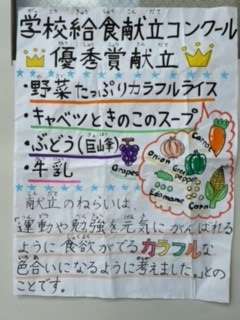 学校給食献立コンクール
優秀賞献立
・野菜たっぷりカラフルライス
・キャベツときのこのスープ
・ぶどう(巨峰)
・牛乳
Carrot
Onion
Green pepper
Grapes
Edamame
Corn
献立のねらいは、
運動や勉強を元気にがんばれる
ように食欲がでるカラフルな
色合いになるように考えました。との
ことです。